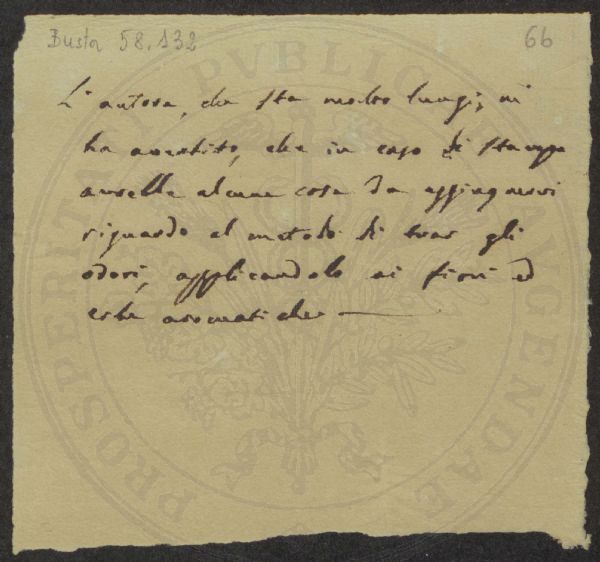 Busta 58.132
66
L'autore, che sta molto lungi, mi
ha avertito, che in caso di stampa
avrebbe alcune cose da aggiugnervi
riguardo al metodo di trar gli
odori, applicandolo ai fiori ed
erbe aromatiche
PROSPERITATI PUBLICAE AUGENDAE